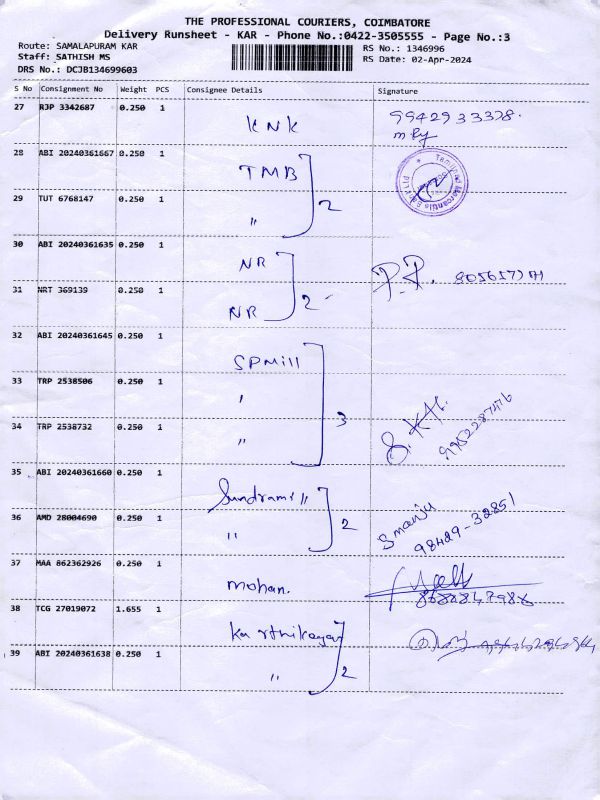 THE PROFESSIONAL COURIERS, COIMBATORE
Delivery Runsheet - KAR - Phone No.:0422-3505555 - Page No.:3
Route: SAMALAPURAM KAR
RS No.: 1346996
Staff: SATHISH MS
RS Date: 02-Apr-2024
DRS No.: DCJB134699603
S No Consignment No Weight PCS Consignee Details Signature
27 RJP 3342687 0.250 1 KNK 9942933378.
28 ABI 20240361667 0.250 1 TMB
29 TUT 6768147 0.250 1 " 2
30 ABI 20240361635 0.250 1 NR
P.P.
31 NRT 369139 0.250 1 NR 2
32 ABI 20240361645 0.250 1 SPMill
33 TRP 2538506 0.250 1 "
34 TRP 2538732 0.250 1 " 3 9952287476
35 ABI 20240361660 0.250 1 Sundramill
36 AMD 28004690 0.250 1 " 2 Smanju
98429-32851
37 MAA 862362926 0.250 1 mohan.
38 TCG 27019072 1.655 1 Karthikayan
39 ABI 20240361638 0.250 1 " 2